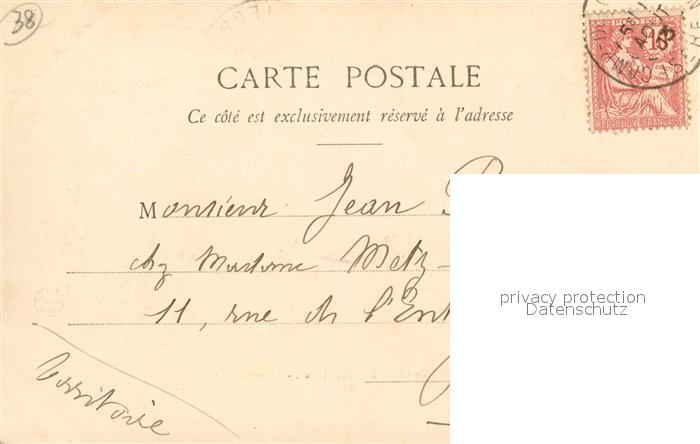 38
CARTE POSTALE
Ce côté est exclusivement réservé à l'adresse
RÉPUBLIQUE FRANÇAISE
Monsieur Jean
chez Madame Metz
11, rue de l'Ent
Territoire
privacy protection
Datenschutz